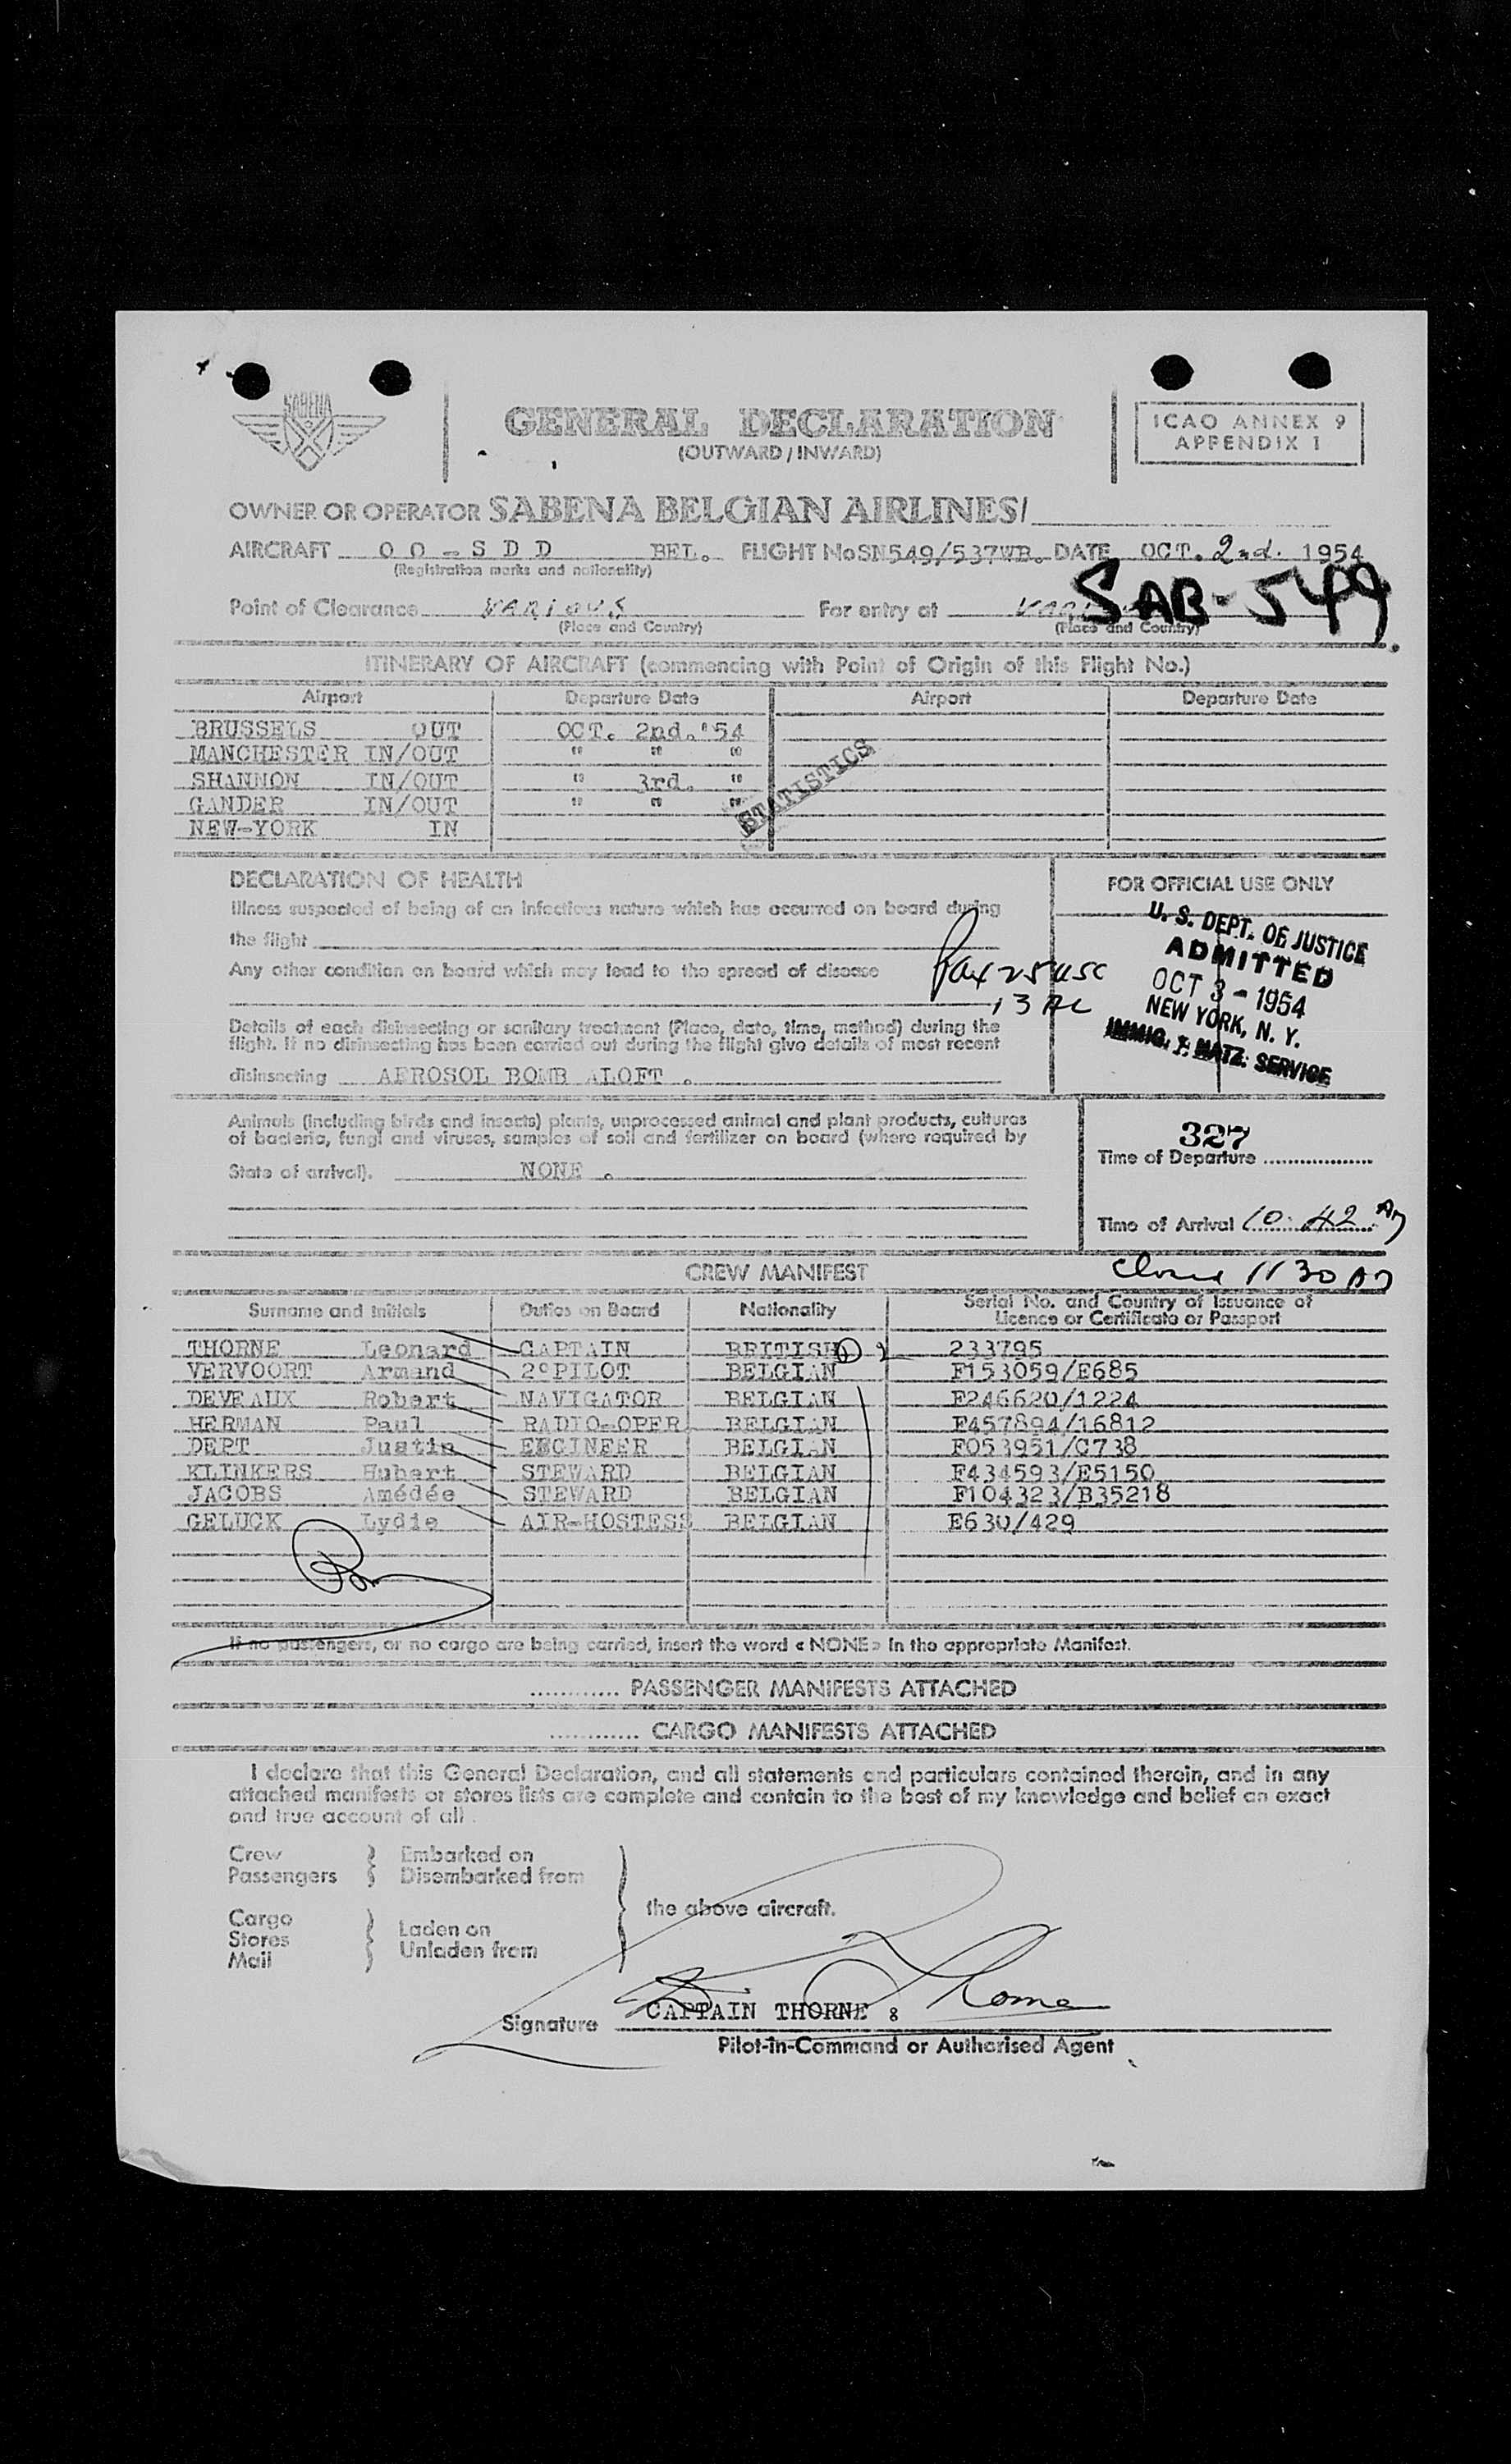 SABENA
GENERAL DECLARATION
(OUTWARD / INWARD)
ICAO ANNEX 9
APPENDIX 1
OWNER OR OPERATOR SABENA BELGIAN AIRLINES/
AIRCRAFT OO-SDD BEL. FLIGHT No SN549/537WB. DATE OCT. 2nd. 1954
(Registration marks and nationality)
SAB-549.
Point of Clearance VARIOUS For entry at
(Place and Country) (Place and Country)
ITINERARY OF AIRCRAFT (commencing with Point of Origin of this Flight No.)
Airport Departure Date Airport Departure Date
BRUSSELS OUT OCT. 2nd. '54
MANCHESTER IN/OUT " " "
SHANNON IN/OUT " 3rd. "
GANDER IN/OUT " " "
NEW-YORK IN
STATISTICS
DECLARATION OF HEALTH
FOR OFFICIAL USE ONLY
Illness suspected of being of an infectious nature which has occurred on board during
the flight
Any other condition on board which may lead to the spread of disease
Pax 25 USC
13 AL
U. S. DEPT. OF JUSTICE
ADMITTED
OCT 3 - 1954
NEW YORK, N. Y.
IMMIG. & NATZ. SERVICE
Details of each disinsecting or sanitary treatment (Place, date, time, method) during the
flight. If no disinsecting has been carried out during the flight give details of most recent
disinsecting AEROSOL BOMB ALOFT .
Animals (including birds and insects) plants, unprocessed animal and plant products, cultures
of bacteria, fungi and viruses, samples of soil and fertilizer on board (where required by
State of arrival). NONE .
327
Time of Departure
Time of Arrival 10:42 AM
Closed 1130 AM
CREW MANIFEST
Surname and Initials Duties on Board Nationality Serial No. and Country of Issuance of
Licence or Certificate or Passport
THORNE Leonard CAPTAIN BRITISH 233795
VERVOORT Armand 2°PILOT BELGIAN F153059/E685
DEVEAUX Robert NAVIGATOR BELGIAN F246620/1224
HERMAN Paul RADIO-OPER BELGIAN F457894/16812
DEPT Justin ENGINEER BELGIAN F053951/C738
KLINKERS Hubert STEWARD BELGIAN F434593/E5150
JACOBS Amédée STEWARD BELGIAN F104323/B35218
GELUCK Lydie AIR-HOSTESS BELGIAN E630/429
If no passengers, or no cargo are being carried, insert the word « NONE » in the appropriate Manifest.
............ PASSENGER MANIFESTS ATTACHED
............ CARGO MANIFESTS ATTACHED
I declare that this General Declaration, and all statements and particulars contained therein, and in any
attached manifests or stores lists are complete and contain to the best of my knowledge and belief an exact
and true account of all .
Crew
Passengers
Embarked on
Disembarked from
the above aircraft.
Cargo
Stores
Mail
Laden on
Unladen from
Signature CAPTAIN THORNE : Thorne
Pilot-in-Command or Authorised Agent